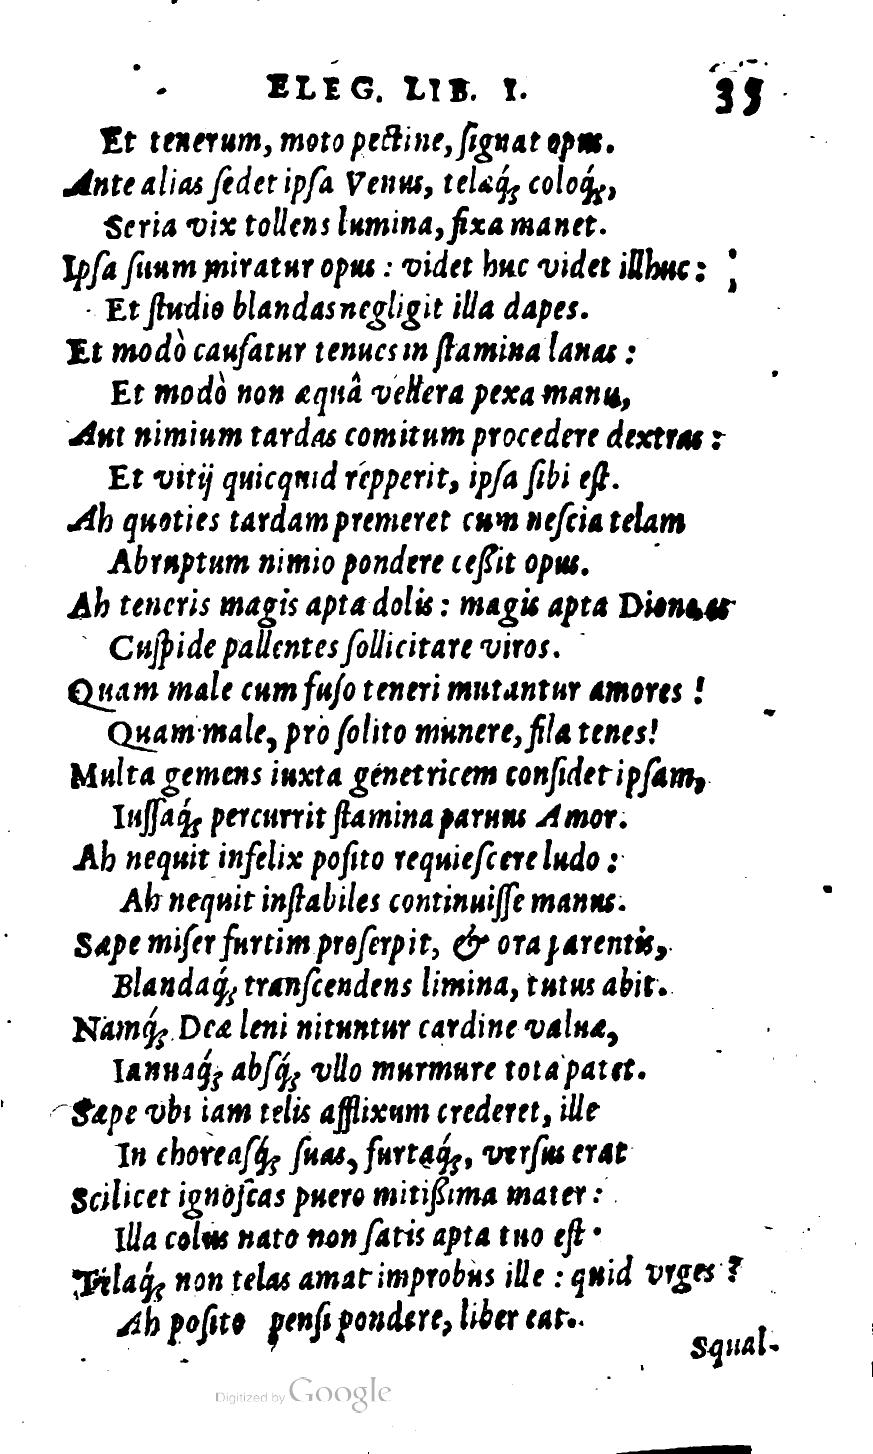 ELEG. LIB. I. 35
Et tenerum, moto pectine, ſignat opus.
Ante alias ſedet ipſa Venus, telaq́; coloq́;,
Seria vix tollens lumina, fixa manet.
Ipſa ſuum miratur opus : videt huc videt illhuc :
Et ſtudio blandas negligit illa dapes.
Et modò cauſatur tenues in ſtamina lanas :
Et modò non æquâ vellera pexa manu,
Aut nimium tardas comitum procedere dextras :
Et vitij quicquid repperit, ipſa ſibi eſt.
Ah quoties tardam premeret cum neſcia telam
Abruptum nimio pondere ceßit opus.
Ah teneris magis apta dolis : magis apta
Cuſpide pallentes ſollicitare viros.
Quam male cum fuſo teneri mutantur amores !
Quam male, pro ſolito munere, fila tenes!
Multa gemens iuxta genetricem conſidet ipſam,
Iuſſaq́; percurrit ſtamina paruus Amor.
Ah nequit infelix poſito requieſcere ludo :
Ah nequit inſtabiles continuiſſe manus.
Sæpe miſer furtim proſerpit, & ora parentis,
Blandaq́; tranſcendens limina, tutus abit.
Namq́; Deæ leni nituntur cardine valuæ,
Ianuaq́; abſq́; vllo murmure tota patet.
Sæpe vbi iam telis afflixum crederet, ille
In choreaſq́; ſuas, furtaq́;, verſus erat
Scilicet ignoſcas puero mitißima mater :
Illa colus nato non ſatis apta tuo eſt.
Telaq́; non telas amat improbus ille : quid vrges ?
Ah poſito penſi pondere, liber eat.
Squal-
Digitized by Google